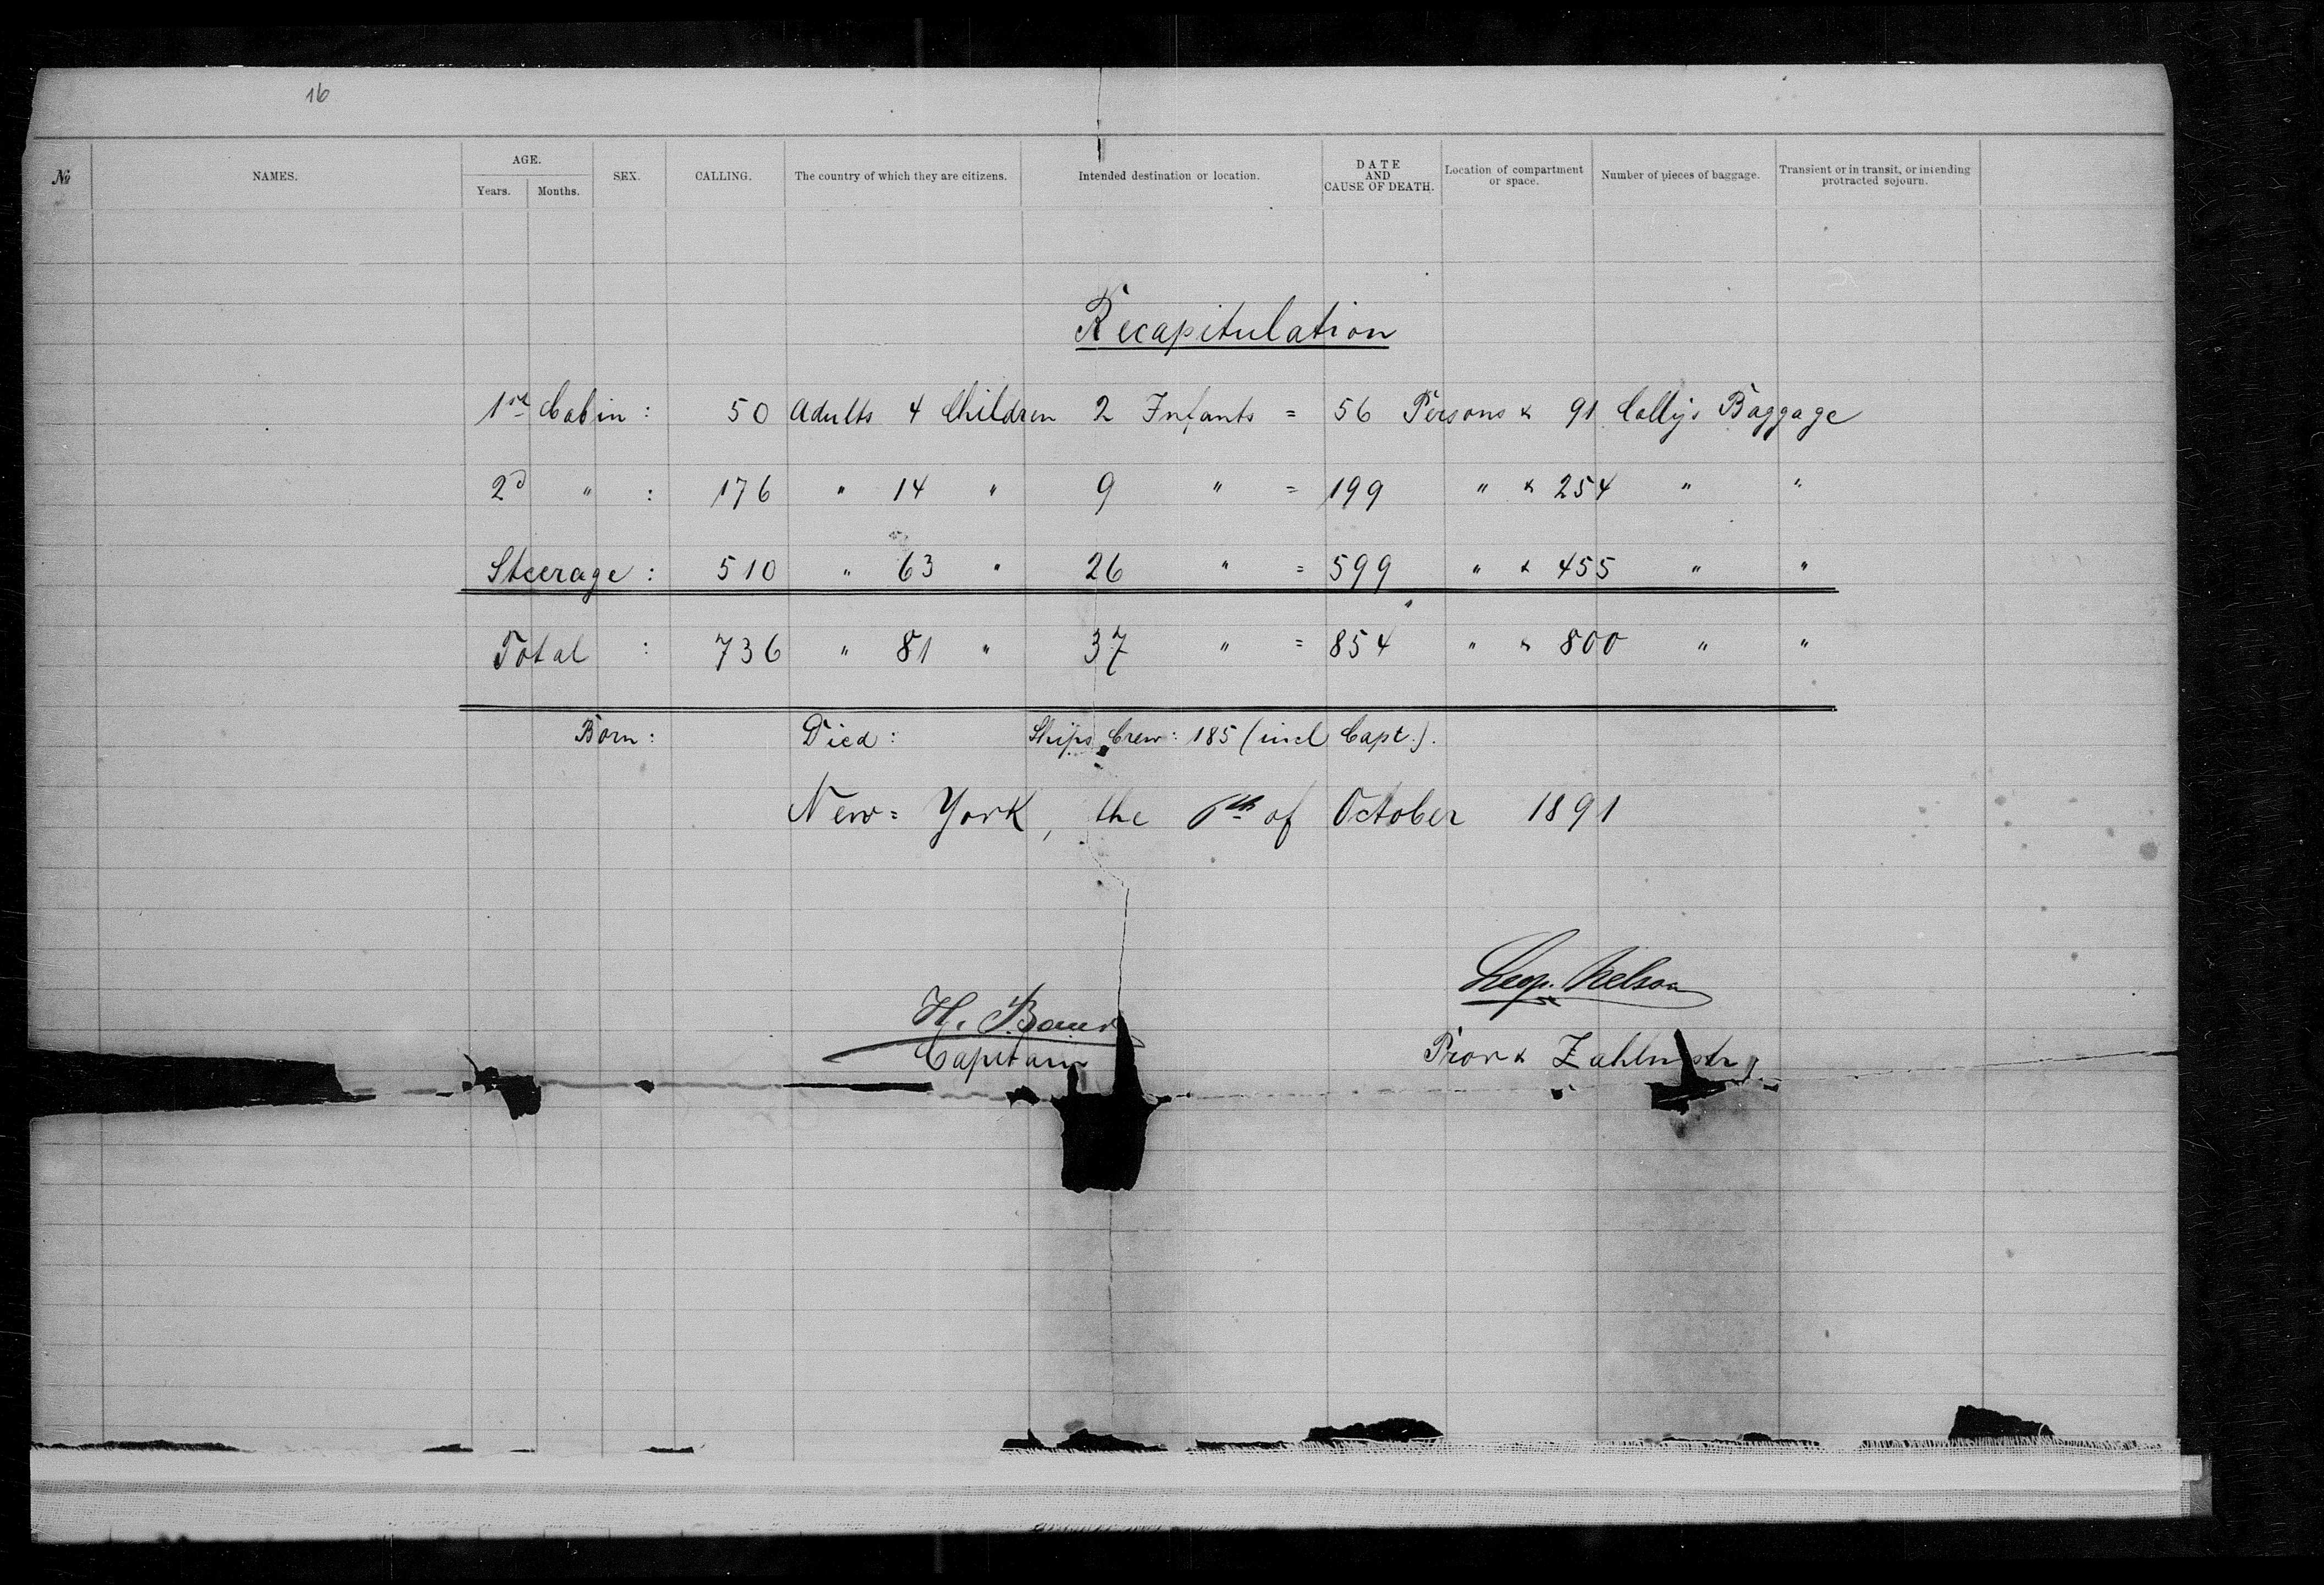 16
№ NAMES. AGE. Years. Months. SEX. CALLING. The country of which they are citizens. Intended destination or location. DATE AND CAUSE OF DEATH. Location of compartment or space. Number of pieces of baggage. Transient or in transit, or intending protracted sojourn.
Recapitulation
1st Cabin : 50 Adults 4 Children 2 Infants = 56 Persons & 91 Collys Baggage
2d " : 176 " 14 " 9 " = 199 " & 254 " "
Steerage : 510 " 63 " 26 " = 599 " & 455 " "
Total : 736 " 81 " 37 " = 854 " & 800 " "
Born : Died : Ships Crew : 185 (incl Capt.).
New = York, the 6th of October 1891
Leop. Nelson
H. Bauer
Capitain
& Zahlmstr